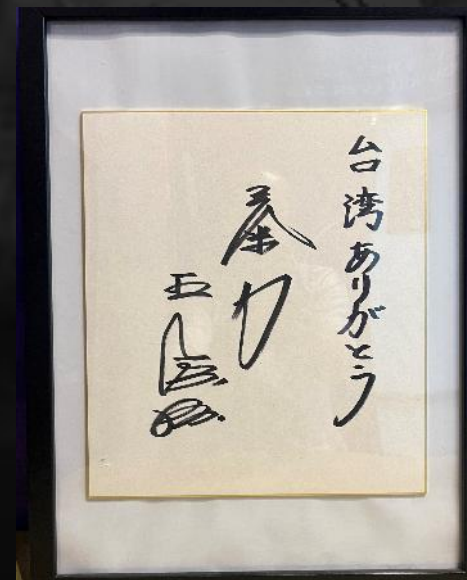 台湾ありがとう
氣力
王貞治